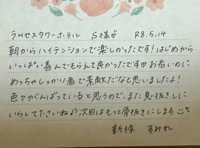 ラルセスタワーホテル S様♡ R8.5.14
朝からハイテンションで楽しかったです!はじめから
いっぱい喜んでもらえて良かったです お互いに
めっちゃしっかり者で素敵だなと思いましたよ!
色々がんばっていると思うので、また息抜きしに
いらしてくださいね♪次回はもっと骨抜きにこします
新保 すみれ